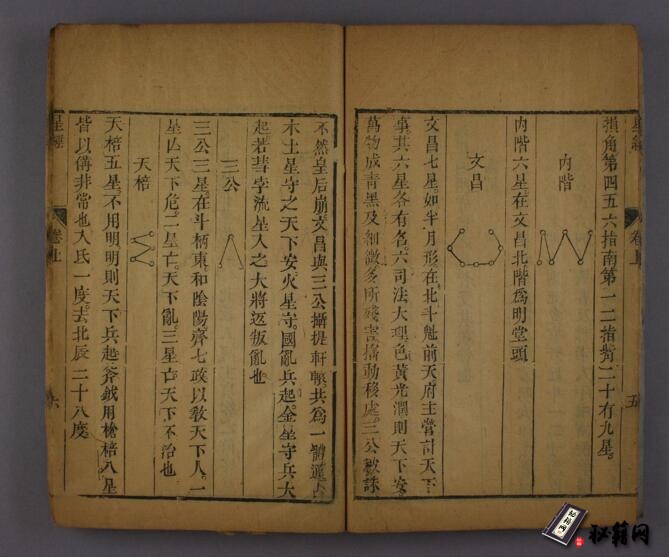 指角第四五六指南第一二指觜二十有九星
內階
內階六星在文昌北階爲明堂頭
文昌
文昌七星如半月形在北斗魁前天府主營計天下
事其六星各有名六司法大理色黃光潤則天下安
萬物成青黑及細微多所殘害搖動移處三公被誅
星經
卷上
五
不然皇后崩文昌與三公攝提軒轅共爲一體通占
木土星守之天下安火星守國亂兵起金星守兵大
起若彗孛流星入之大將返叛亂也
三公
三公三星在斗柄東和陰陽齊七政以教天下人一
星亾天下危二星亡天下亂三星亡天下不治也
天棓
天棓五星不用明明則天下兵起斧鉞用槍棓八星
皆以備非常也入氐一度去北辰二十八度
星經
卷上
六
秘籍网
秘籍网